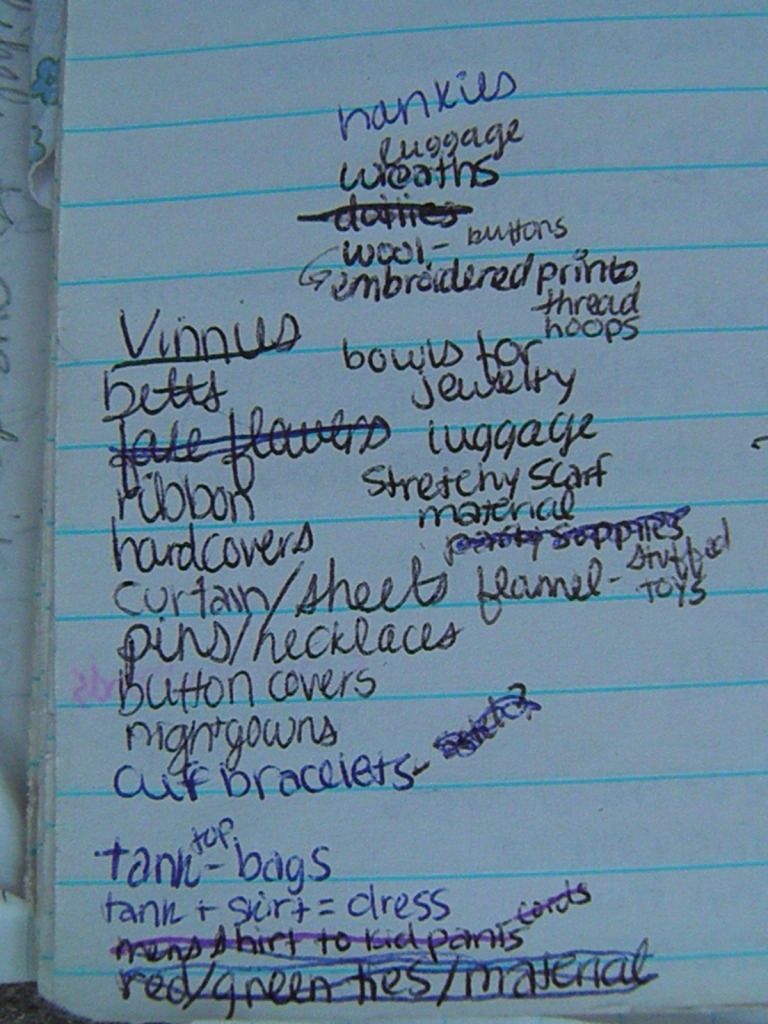 hankies
luggage
wreaths
doilies
wool - buttons
embroidered prints
thread
hoops
Vinnies
bowls for
jewelry
belts
fake flowers
luggage
ribbon
stretchy scarf
material
hardcovers
party supplies
curtain/sheets flannel - stuffed
toys
pins/necklaces
button covers
nightgowns
cuf bracelets -
tank top - bags
tank + skirt = dress
mens shirt to kid pants - cords
red/green ties/material